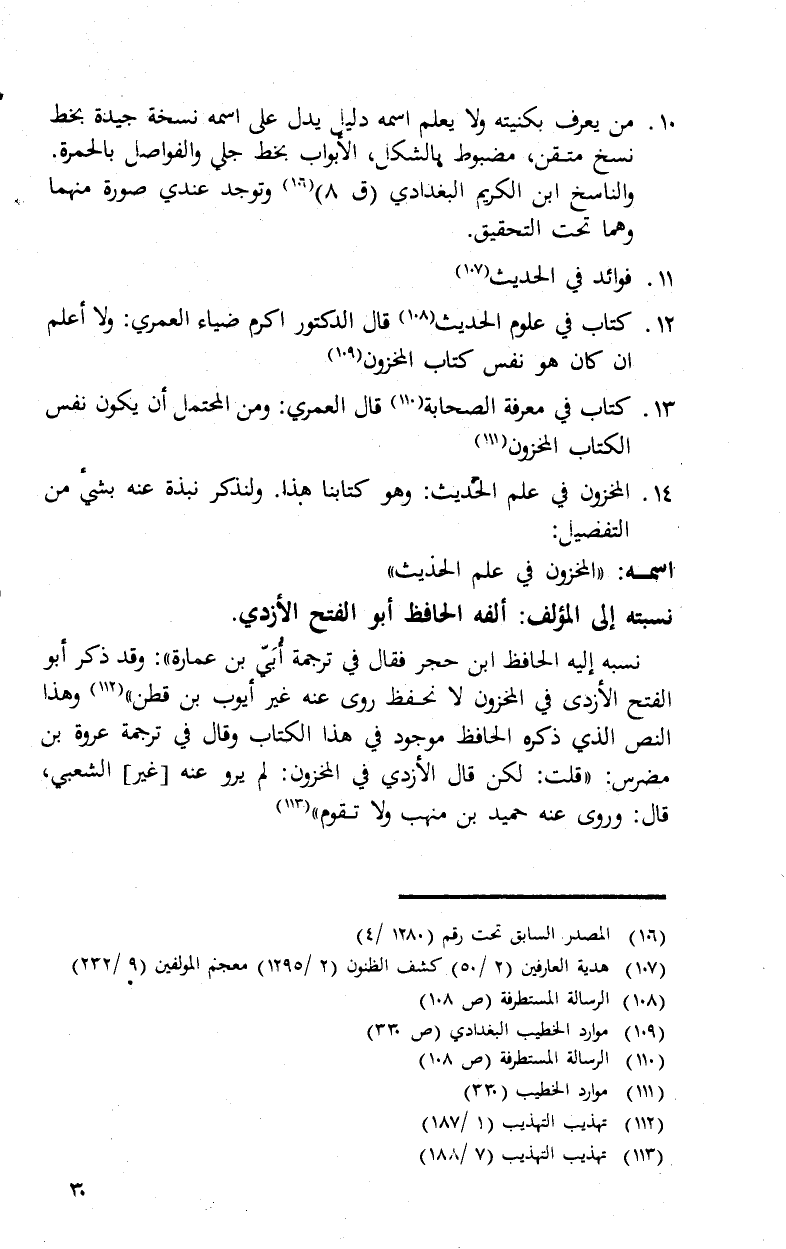 ١٠. من يعرف بكنيته ولا يعلم اسمه دليل يدل على اسمه نسخة جيدة بخط
نسخ متـقن، مضبوط بالشكل، الأبواب بخط جلي والفواصل بالحمرة.
والناسخ ابن الكريم البغدادي (ق ٨)(١٠٦) وتوجد عندي صورة منهما
وهما تحت التحقيق.
١١. فوائد في الحديث(١٠٧)
١٢. كتاب في علوم الحديث(١٠٨) قال الدكتور اكرم ضياء العمري: ولا أعلم
ان كان هو نفس كتاب المخزون(١٠٩)
١٣. كتاب في معرفة الصحابة(١١٠) قال العمري: ومن المحتمل أن يكون نفس
الكتاب المخزون(١١١)
١٤. المخزون في علم الحديث: وهو كتابنا هذا. ولنذكر نبذة عنه بشيٴ من
التفصيل:
اسمـــه: «المخزون في علم الحذيث»
نسبته إلى المؤلف: ألفه الحافظ أبو الفتح الأزدي.
نسبه إليه الحافظ ابن حجر فقال في ترجمة أُبَيّ بن عمارة»: وقد ذكر أبو
الفتح الأزدى في المخزون لا نحـفظ روى عنه غير أيوب بن قطن»(١١٢) وهذا
النص الذي ذكره الحافظ موجود في هذا الكتاب وقال في ترجمة عروة بن
مضرس: «قلت: لكن قال الأزدي في المخزون: لم يرو عنه [غير] الشعبي،
قال: وروى عنه حميد بن منهب ولا تـقوم»(١١٣)
(١٠٦) المصدر السابق تحت رقم (١٢٨٠ /٤)
(١٠٧) هدية العارفين (٢ /٥٠) كشف الظنون (٢ /١٢٩٥) معجم المولفين (٩ /٢٣٢)
(١٠٨) الرسالة المستطرفة (ص ١٠٨)
(١٠٩) موارد الخطيب البغدادي (ص ٣٣٠)
(١١٠) الرسالة المستطرفة (ص ١٠٨)
(١١١) موارد الخطيب (٣٣٠)
(١١٢) تهذيب التهذيب (١ /١٨٧)
(١١٣) تهذيب التهذيب (٧ /١٨٨)
٣٠